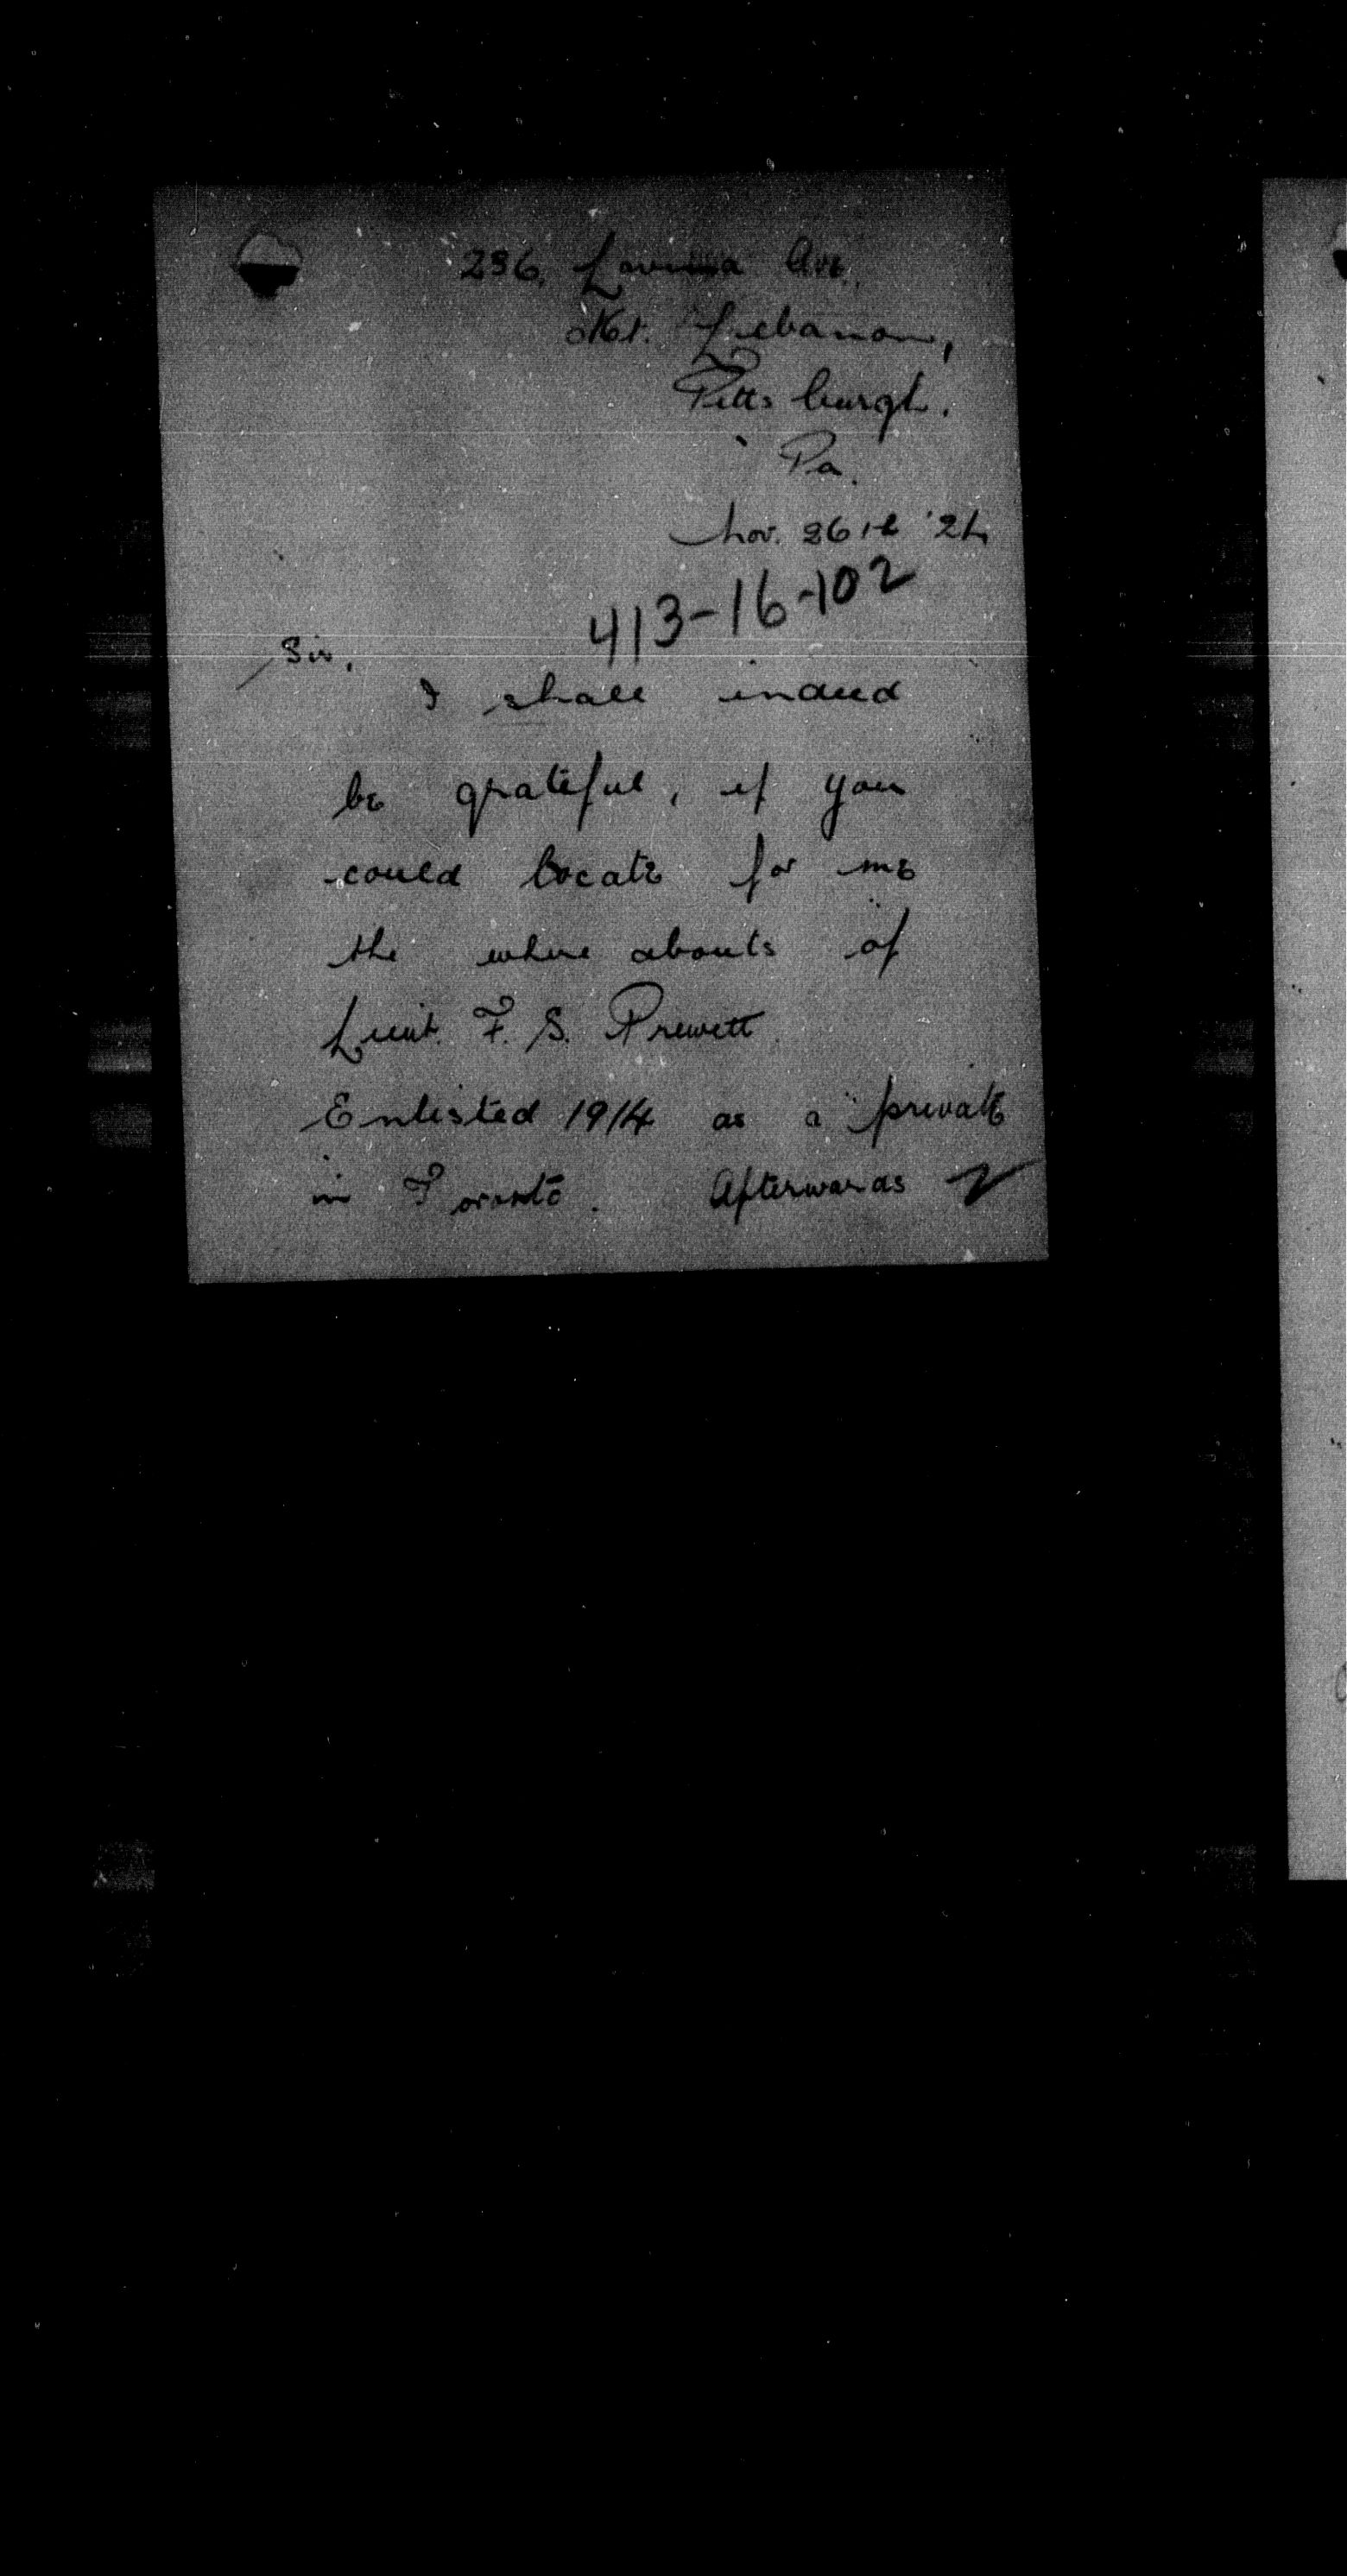 236, Lavina Ave.,
Mt. Lebanon,
Pittsburgh.
Pa.
Nov. 26th '24
413-16-102
Sir,
I shall indeed
be grateful, if you
could locate for me
the where abouts of
Lieut. F. S. Prewett.
Enlisted 1914 as a private
in Toronto. Afterwards